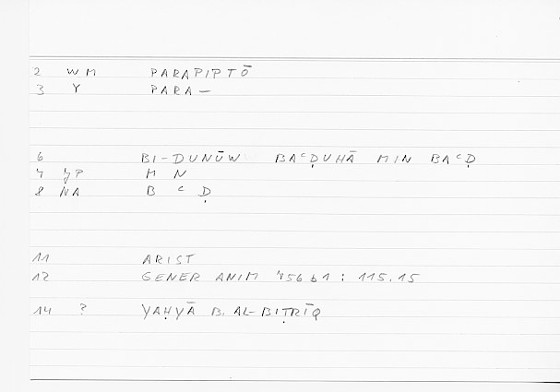 2 WM PARAPIPTŌ
3 Y PARA—
6 BI-DUNŪW BAᶜḌUHĀ MIN BAᶜḌ
7 YP M N
8 NA B ᶜ Ḍ
11 ARIST
12 GENER ANIM 756 b1 : 115.15
14 ? YAḤYĀ B. AL-BIṬRĪQ